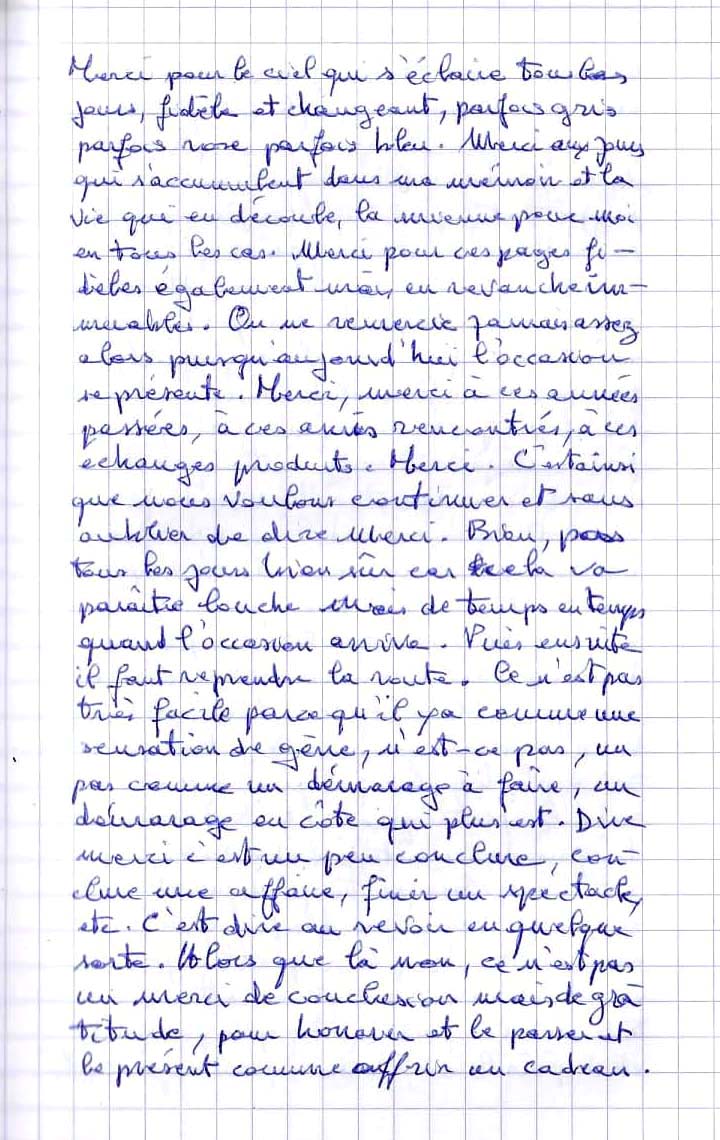 Merci pour le ciel qui s'éclaire tous les
jours, fidèle et changeant, parfois gris
parfois rose parfois bleu. Merci aux jours
qui s'accumulent dans ma mémoire et la
vie qui en découle, la mienne pour moi
en tous les cas. Merci pour ces pages fi-
dèles également mais, en revanche im-
muables. On ne remercie jamais assez
alors puisqu'aujourd'hui l'occasion
se présente. Merci, merci à ces années
passées, à ces amis rencontrés, à ces
échanges produits. Merci. C'est ainsi
que nous voulons continuer et sans
oublier de dire merci. Bien, pas
tous les jours bien sûr car cela va
paraître louche mais de temps en temps
quand l'occasion arrive. Puis ensuite
il faut reprendre la route. Ce n'est pas
très facile parce qu'il y a comme une
sensation de gêne, n'est-ce pas, un
pas comme un démarage à faire, un
démarage en côte qui plus est. Dire
merci c'est un peu conclure, con-
clure une affaire, finir un spectacle,
etc. C'est dire au revoir en quelque
sorte. Alors que là non, ce n'est pas
un merci de conclusion mais de gra
titude, pour honorer et le passé et
le présent comme offrir un cadeau.